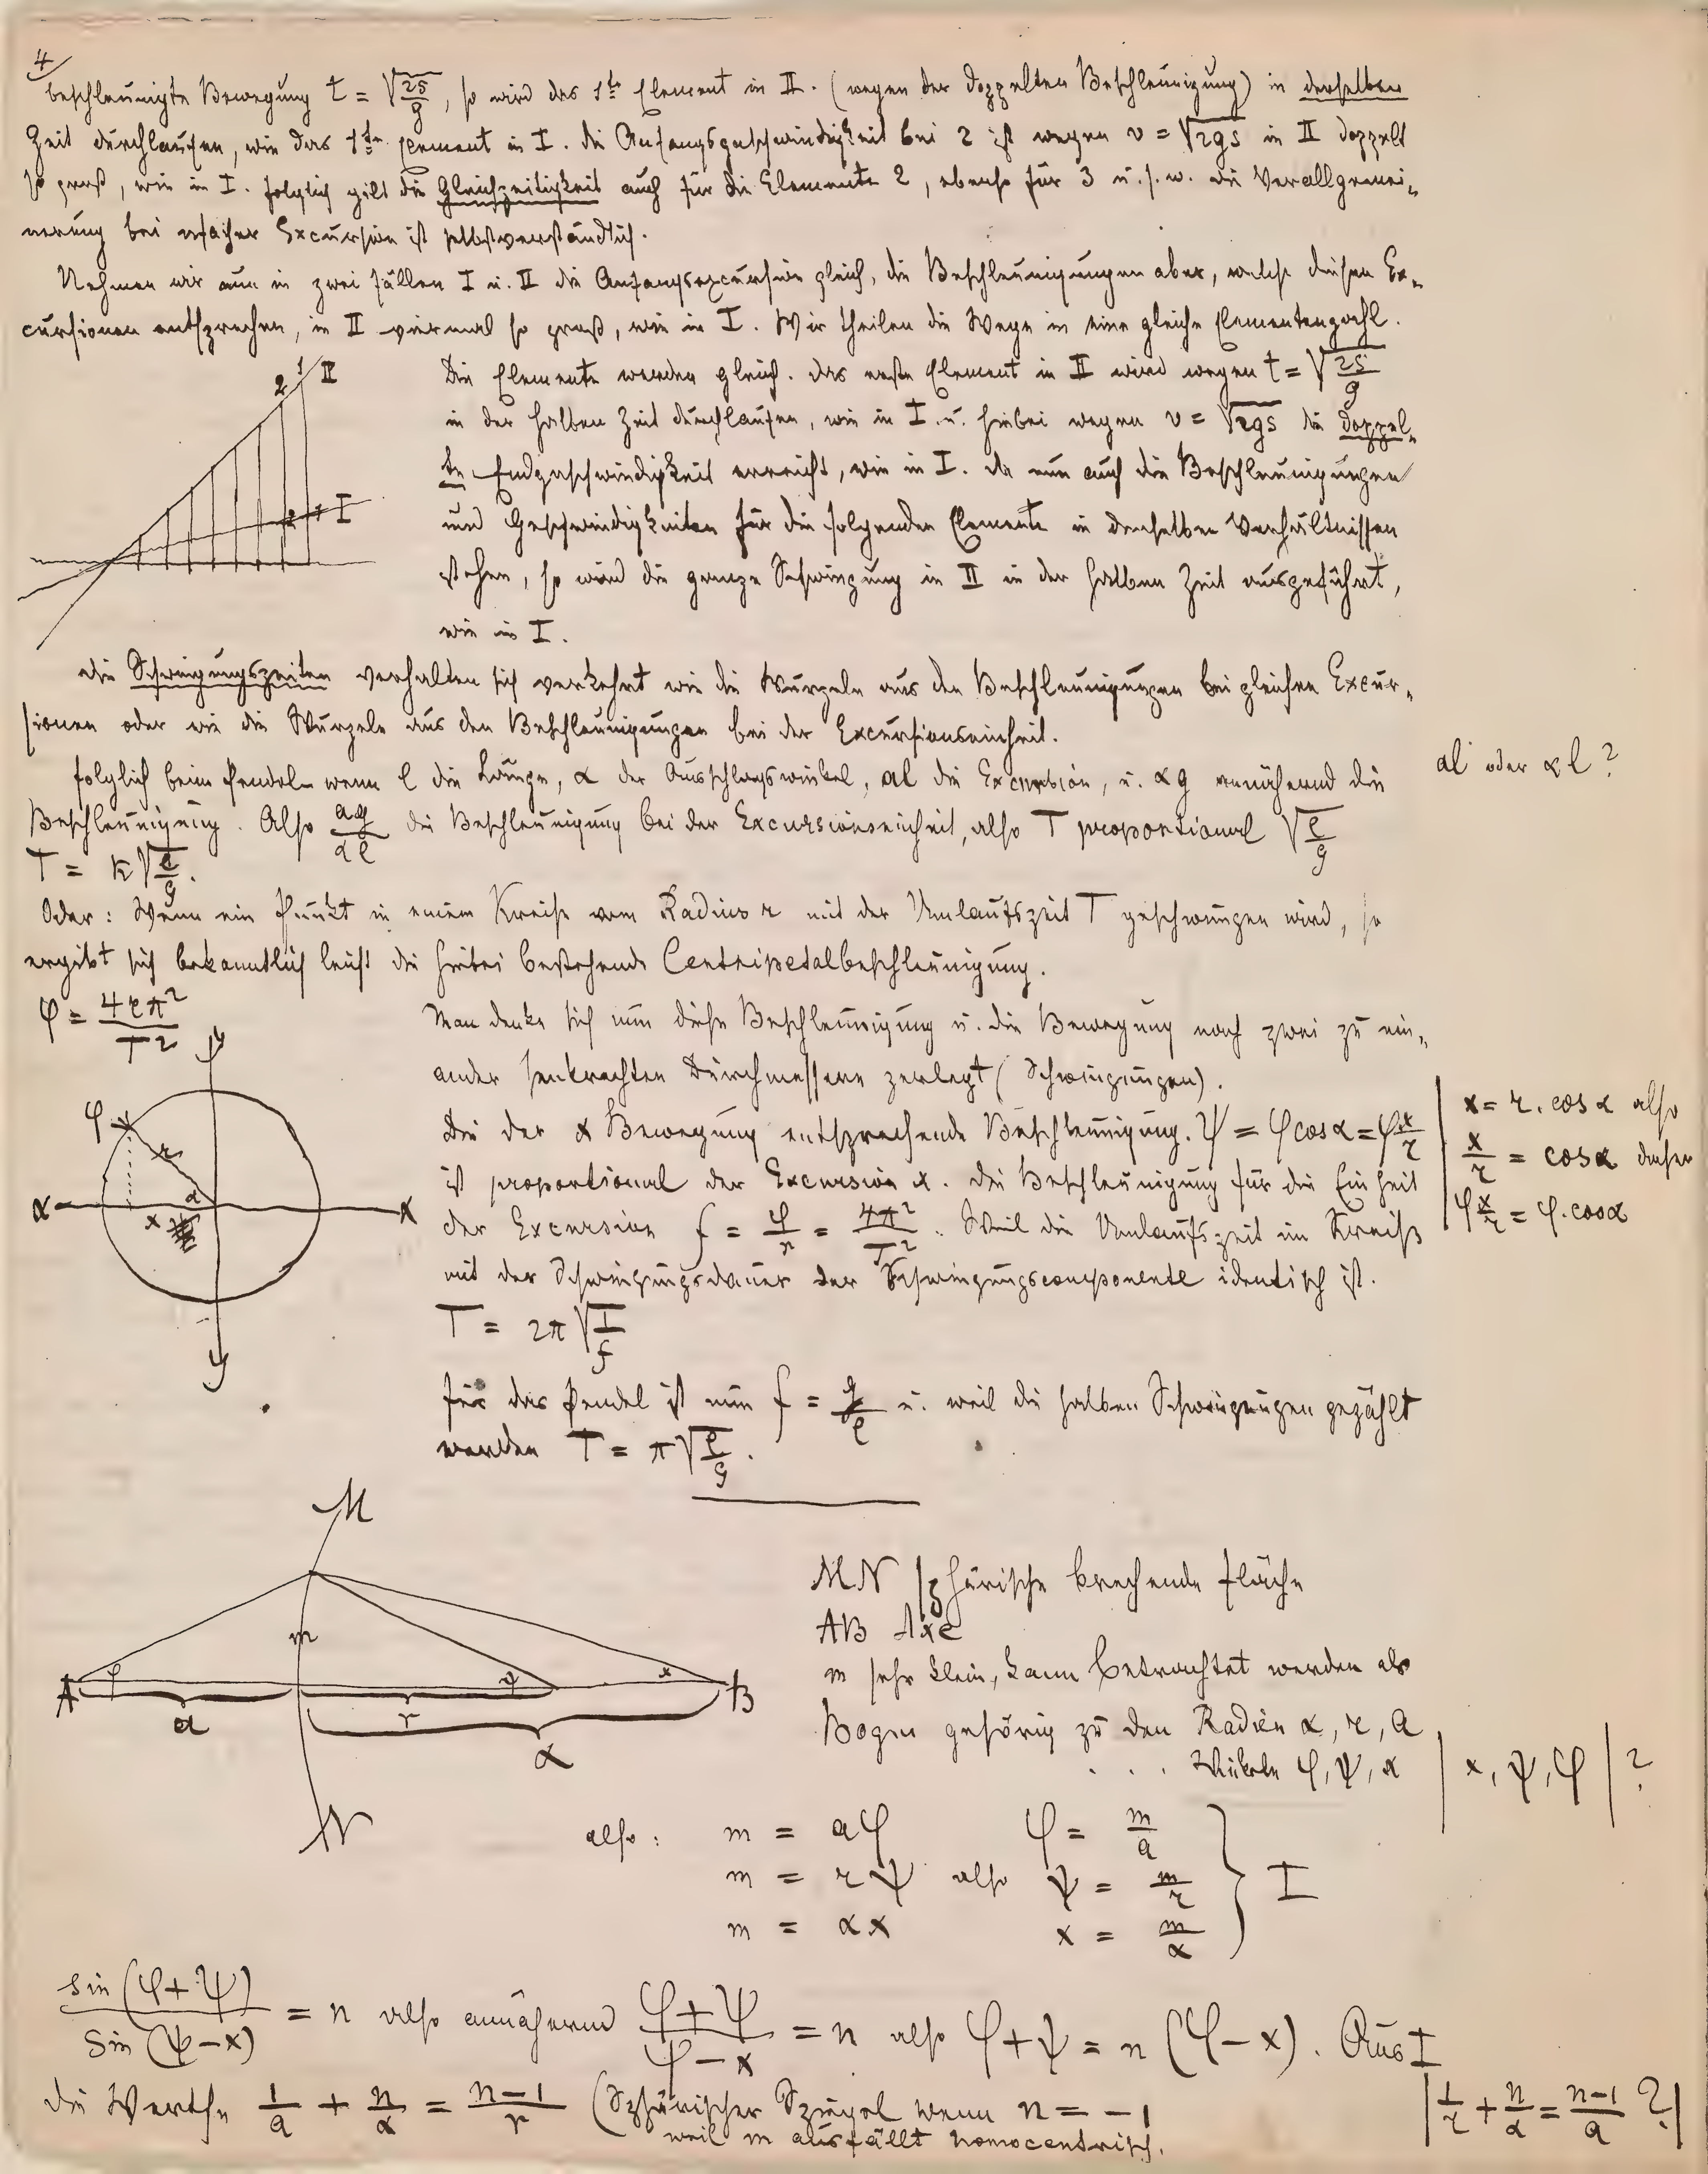 4
beschleunigte Bewegung t = √2s/g, so wird das 1te Element in II. (wegen der doppelten Beschleunigung) in derselben
Zeit durchlaufen, wie das 1te Element in I. die Anfangsgeschwindigkeit bei 2 ist wegen v = √2gs in II doppelt
so groß, wie in I. folglich gilt die Gleichzeitigkeit auch für die Elemente 2, ebenso für 3 u.s.w. die Verallgemei„
nerung bei nfacher Excursion ist selbstverständlich.
Nehmen wir nun in zwei Fällen I u. II die Anfangsexcursion gleich, die Beschleunigungen aber, welche diesen Ex„
cursionen entsprechen, in II viermal so groß, wie in I. Wir theilen die Wege in eine gleiche Elementenzahl.
2 1 II
2 1 I
Die Elemente werden gleich. das erste Element in II wird wegen t = √2s/g
in der halben Zeit durchlaufen, wie in I. u. hiebei wegen v = √2gs die doppel„
te Endgeschwindigkeit erreicht, wie in I. da nun auch die Beschleunigungen
und Geschwindigkeiten für die folgenden Elemente in denselben Verhältnissen
stehen, so wird die ganze Schwingung in II in der halben Zeit ausgeführt,
wie in I.
die Schwingungszeiten verhalten sich verkehrt wie die Wurzeln aus den Beschleunigungen bei gleichen Excur„
sionen oder wie die Wurzeln aus den Beschleunigungen bei der Excursionseinheit.
folglich beim Pendel wenn l die Länge, α der Ausschlagswinkel, al die Excursion, u. αg annähernd die
al oder αl?
Beschleunigung. Also ag/αl die Beschleunigung bei der Excursionseinheit, also T proportional √l/g
T = k√l/g.
Oder: Wenn ein Punkt in einem Kreise vom Radius r mit der Umlaufszeit T geschwungen wird, so
ergibt sich bekanntlich leicht die hiebei bestehende Centripetalbeschleunigung.
φ = 4rπ²/T²
Man denke sich nun diese Beschleunigung u. die Bewegung nach zwei zu ein„
ander senkrechten Durchmessern zerlegt (Schwingungen).
Die der x Bewegung entsprechende Beschleunigung. ψ = φcosα = φx/r
ist proportional der Excursion x. die Beschleunigung für die Einheit
der Excursion f = φ/r = 4π²/T². Weil die Umlaufszeit im Kreise
mit der Schwingungsdauer der Schwingungscomponente identisch ist.
x = r.cosα also
x/r = cosα daher
φx/r = φ.cosα
y
φ
r
α
x
x
x
y
T = 2π√1/f
für das Pendel ist nun f = g/l u. weil die halben Schwingungen gezählt
werden T = π√l/g.
M
m
A φ ψ x B
a r
α
N
MN sphärische brechende Fläche
AB Axe
m sehr klein, kann betrachtet werden als
Bogen gehörig zu den Radien α, r, a
. . . Winkeln φ, ψ, x | x, ψ, φ | ?
also: m = aφ φ = m/a
m = rψ also ψ = m/r } I
m = αx x = m/α
sin (φ+ψ)/sin (ψ−x) = n also annähernd φ+ψ/φ−x = n also φ+ψ = n (φ−x). Aus I
die Werthe 1/a + n/α = n−1/r (Sphärischer Spiegel wenn n = −1
weil m ausfällt homocentrisch.
| 1/r + n/α = n−1/a ? |